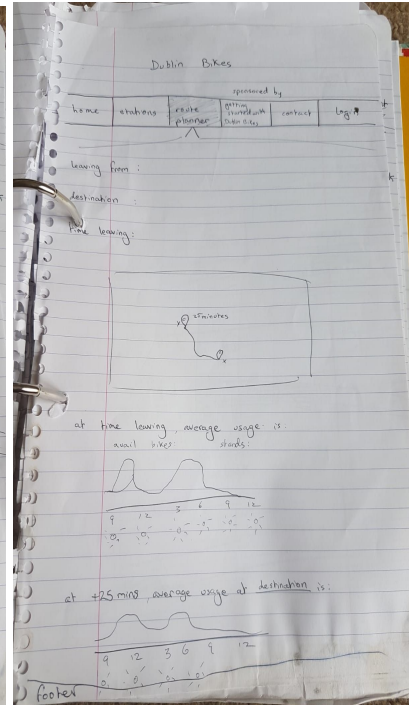 Dublin Bikes
sponsored by
home stations route planner getting started with contact
leaving from :
destination :
time leaving :
25 minutes
Y
x
at time leaving, average usage is:
avail bikes: stands:
9 12 3 6 9 12
at +25 mins, average usage at destination is:
9 12 3 6 9 12
footer